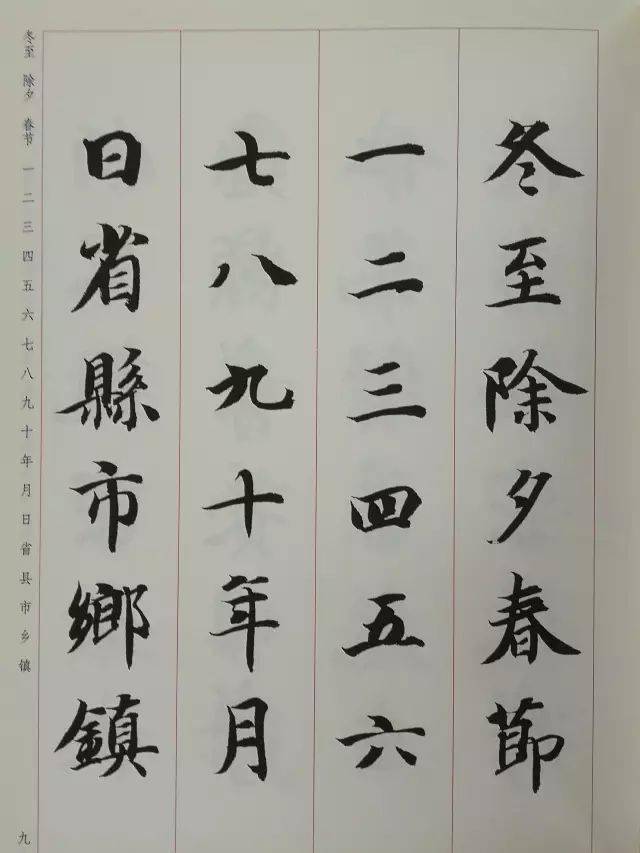 冬至除夕春節
一二三四五六
七八九十年月
日省縣市鄉鎮
冬至 除夕 春节 一 二 三 四 五 六 七 八 九 十 年 月 日 省 县 市 乡 镇
九